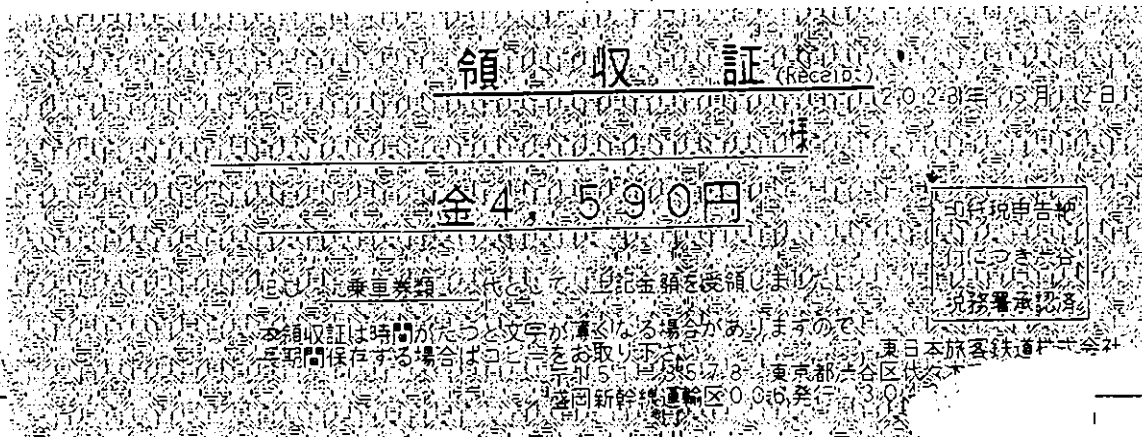 領収証 (Receipt)
様
金4,590円
印紙税申告納
付につき渋谷
税務署承認済
但し、乗車券類 代として、上記金額を受領しました。
本領収証は時間がたつと文字が薄くなる場合がありますので、
長期間保存する場合はコピーをお取り下さい
東日本旅客鉄道株式会社
東京都渋谷区代々木
盛岡新幹線運輸区006発行